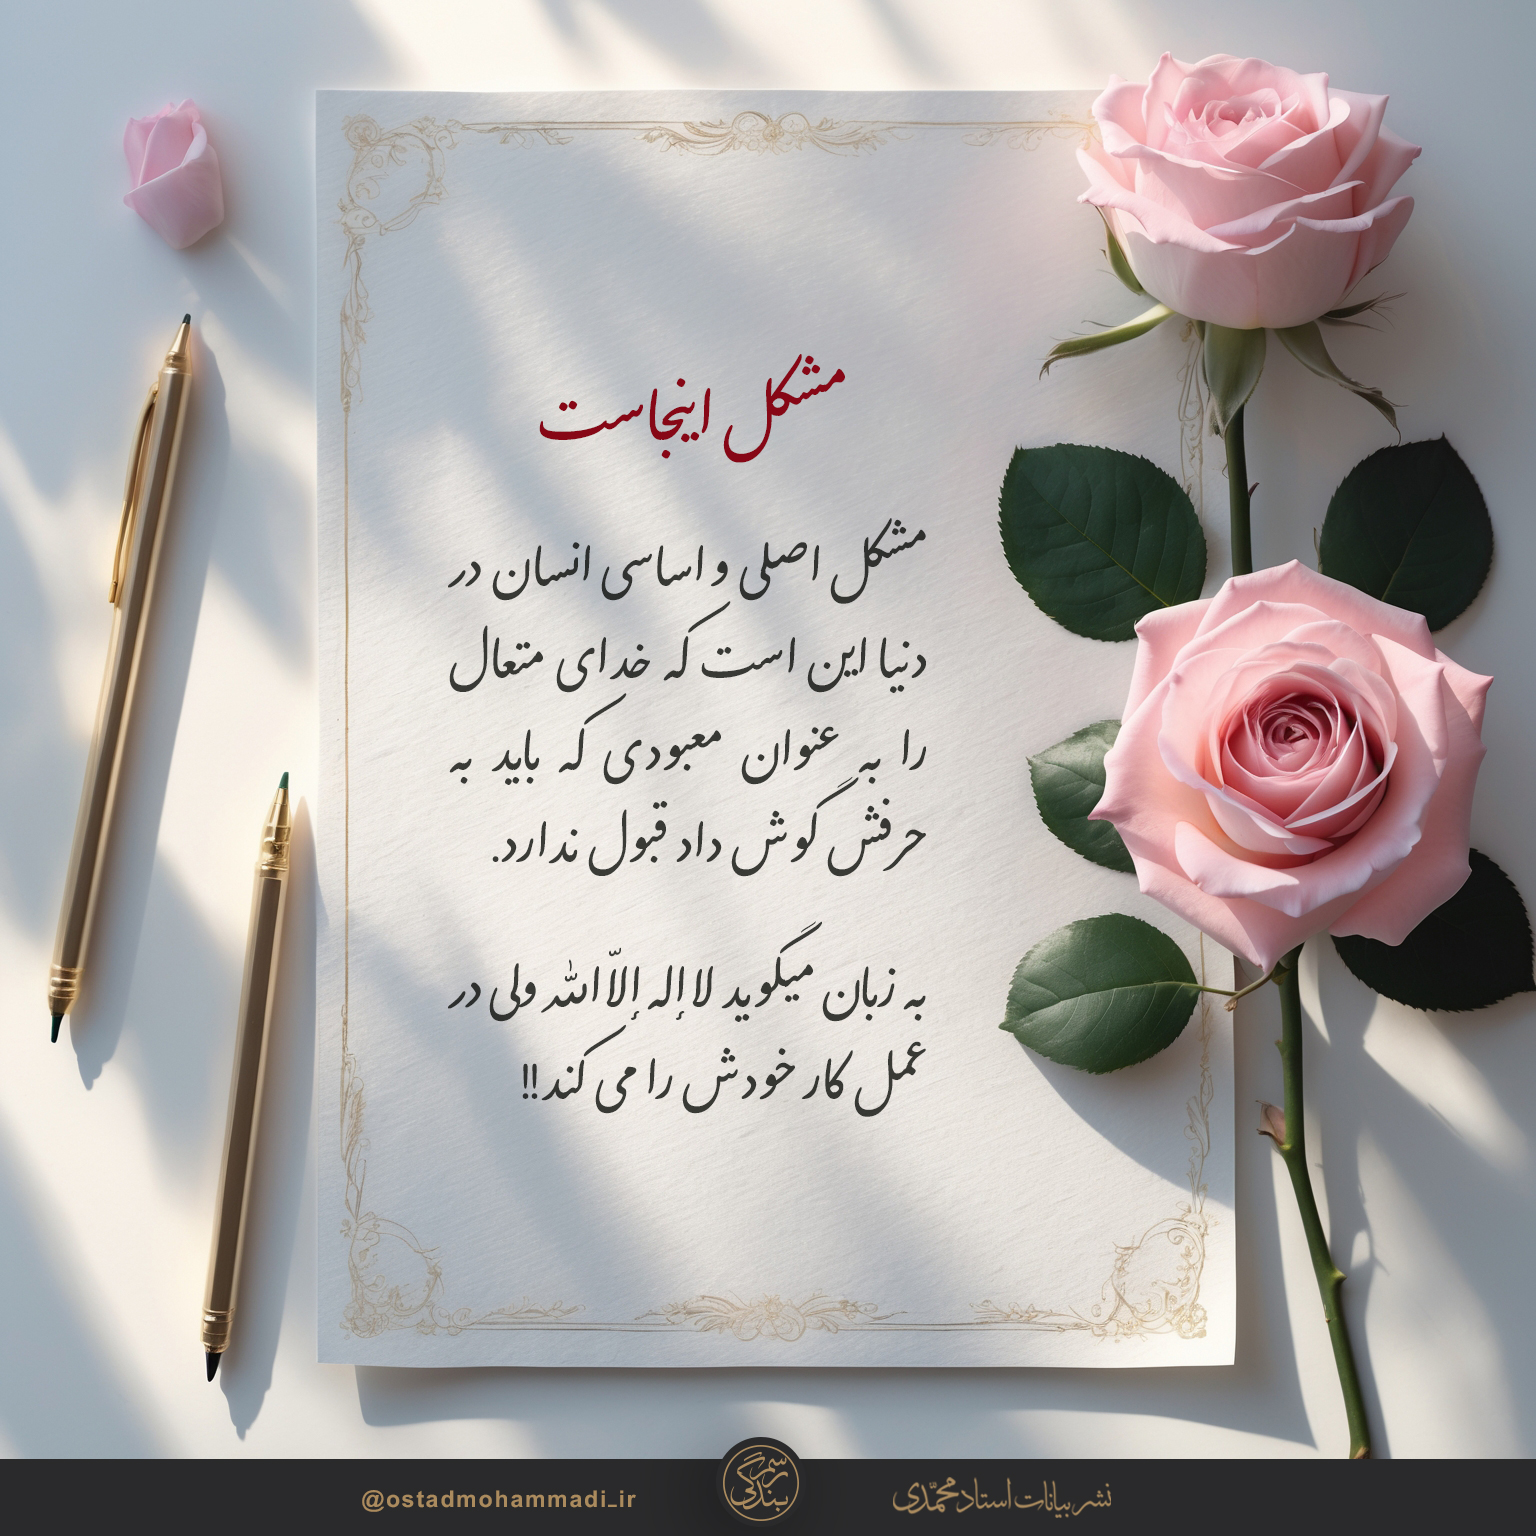 مشکل اینجاست
مشکل اصلی و اساسی انسان در
دنیا این است که خدای متعال
را به عنوان معبودی که باید به
حرفش گوش داد قبول ندارد.
به زبان میگوید لا إله إلّا الله ولی در
عمل کار خودش را می کند!!
@ostadmohammadi_ir
رسم بندگی
نشر بیانات استاد محمّدی